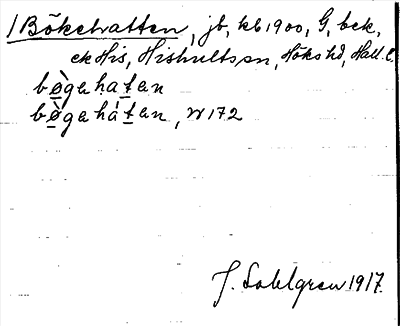 /Bökehatten, jb, kb 1900, G, bck,
ek His, Hishults sn, Höks hd, Hall. l.
bø̀gahatan
bø̀gahátan, W 172
J. Sahlgren 1917.